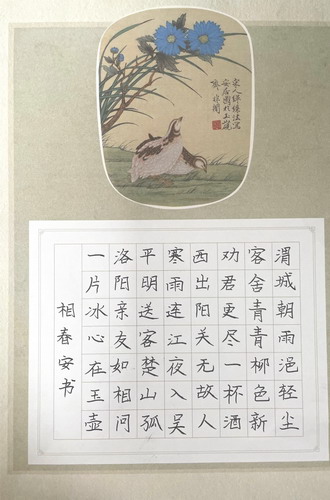 宋人法寫
安居圖於山窗
渭城朝雨浥轻尘
客舍青青柳色新
劝君更尽一杯酒
西出阳关无故人
寒雨连江夜入吴
平明送客楚山孤
洛阳亲友如相问
一片冰心在玉壶
相春安书